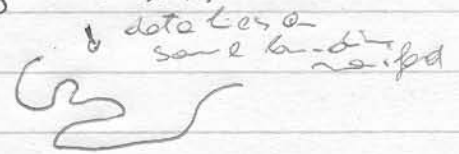 data lies on
some low-dim
manifold